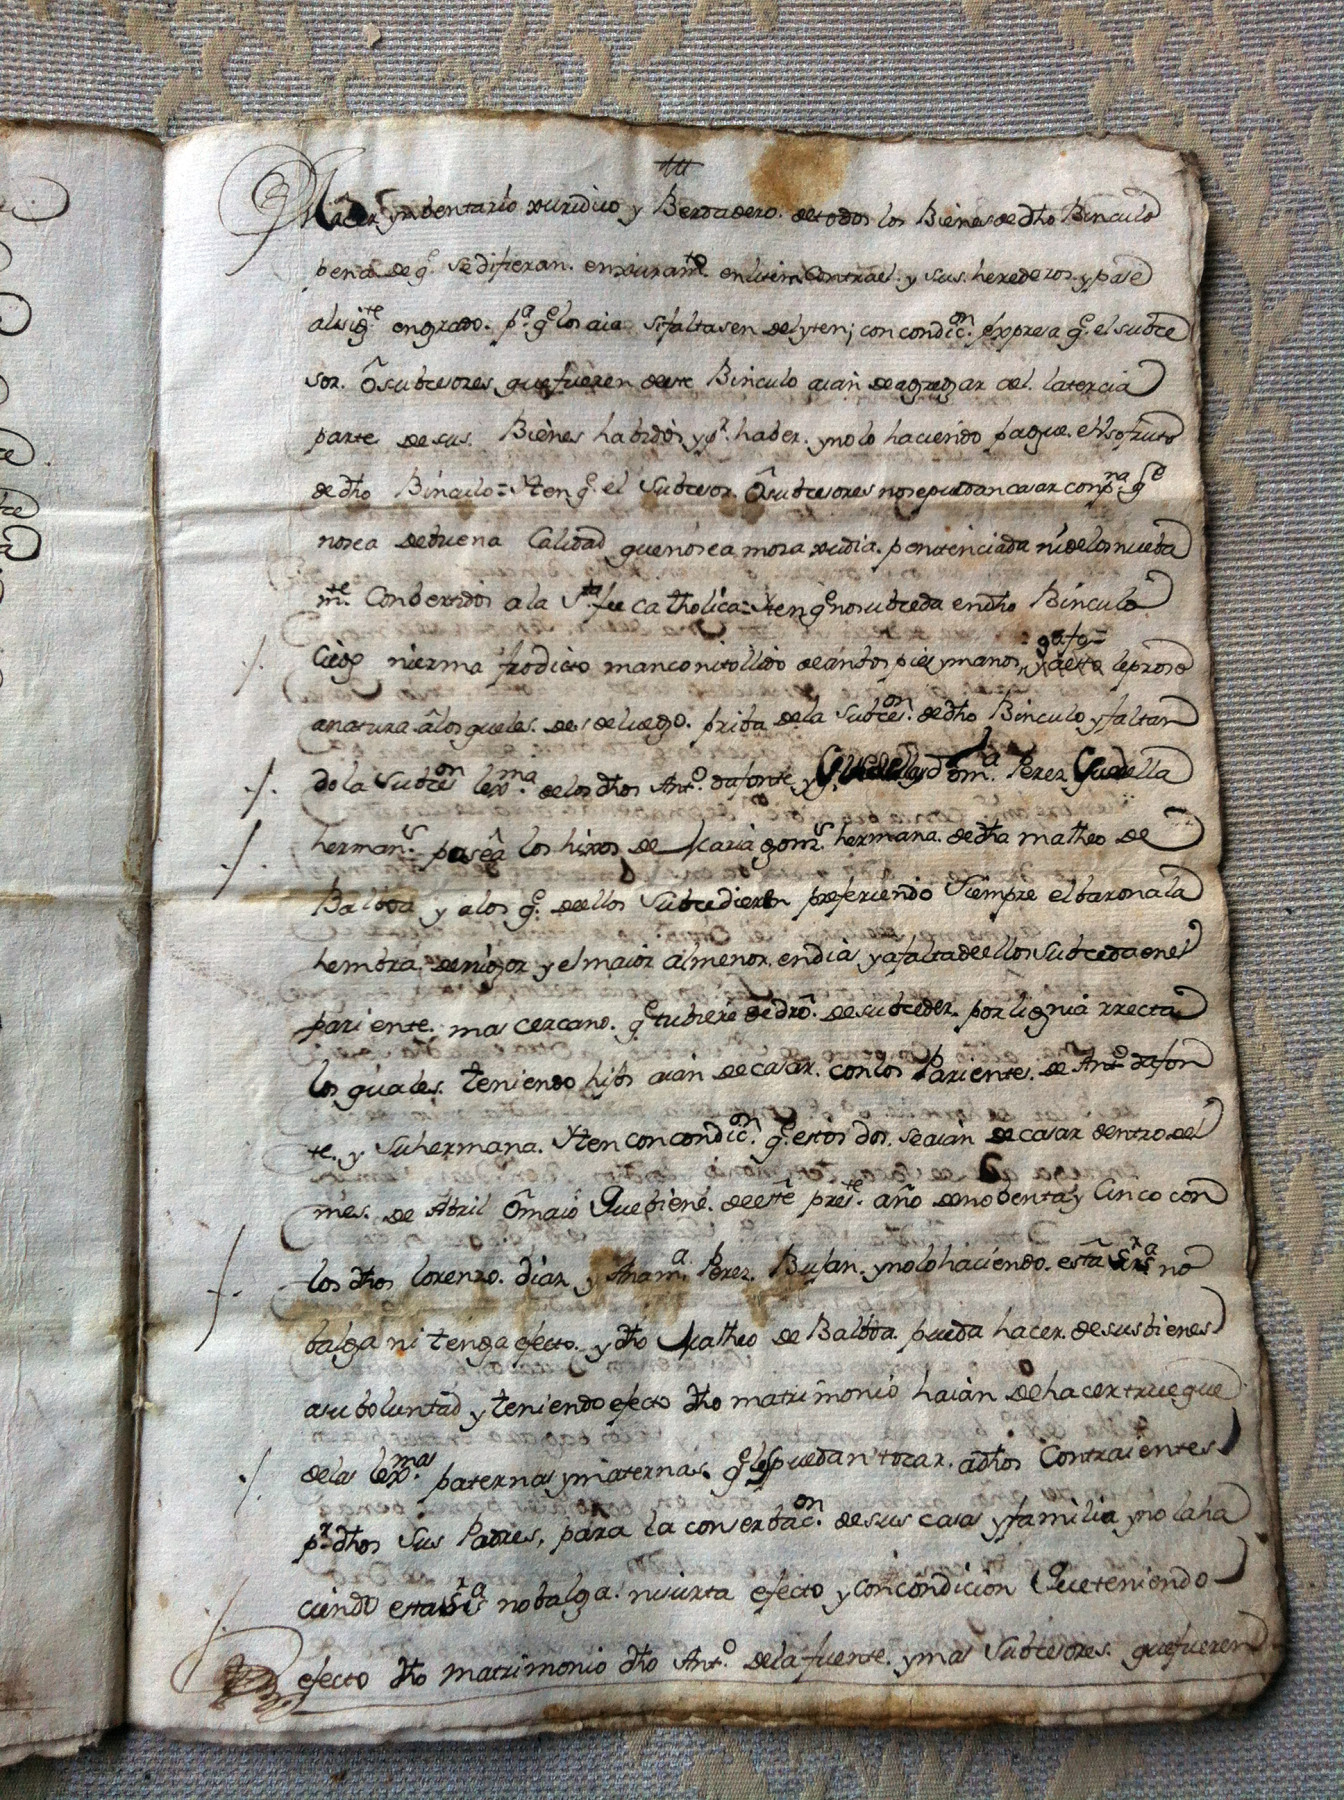 hacer ynbentario xuridico y Berdadero. de todos los Bienes de dho Binculo
pena de q.e se difieran. en xuram.to en litem contra el. y sus. herederos. y pase
al sig.te en grado. p.a q.e los aia si faltasen del yten; con condiç.on expresa q.e el subce
sor. ô subcesores que fueren deste Binculo aian de agregar a el. la tercia
parte de sus. Bienes habidos y p.r haber. y no lo haciendo pague. el Vsofruto
de dho Binculo = Yten q.e el subcesor. ô subcesores no se puedan casar con p.na q.e
no sea de buena Calidad que no sea mora xudia. penitenciada ni de los nueba
m.te Conbertidos a la S.ta fee catholica = Yten q.e no subceda en dho Binculo
Ciego ni erma frodicto manco ni tollido de ambos pies y manos gafo = leproso
a natura â los queles. desde luego. priba de la subces.on de dho Binculo y faltan
do la subces.on lex.ma de los dhos Ant.o dafonte y dom.a Perez
herman.s pase â los hixos de Maria gom.s hermana. de dha matheo de
Balboa y a los q.e de ellos subcedieren prefiriendo siempre el baron a la
hembra, de rigor y el maior al menor. en dias y a falta de ellos subceda en el
pariente. mas cercano. q.e tubiere de dro. de subceder. por lignia rrecta
los quales. teniendo hijos aian de casar. con los Parientes. de Ant.o dafon
te. y su hermana. Yten con condic.on q.e estos dos. se aian de casar dentro del
mes. de Abril ô maio Que biene. de este pres.te año de nobenta y Cinco con
los dhos lorenzo. diaz y Ana m.a Perez. Bujan. y no lo haciendo. esta scr.a no
balga ni tenga efecto. y dho Matheo de Balboa. pueda hacer. de sus bienes
a su boluntad y teniendo efecto dho matrimonio haian de hacer trueque
de las lex.mas paternas y maternas. q.e les puedan tocar. a dhos Contraientes
p.r dhos Sus Padres, para la conserbac.on de sus casas y familia y no la ha
ciendo esta scr.a no balga. ni surta efecto y con condicion Que teniendo
efecto dho matrimonio dho Ant.o de la fuente. y mas Subcesores. que fueren